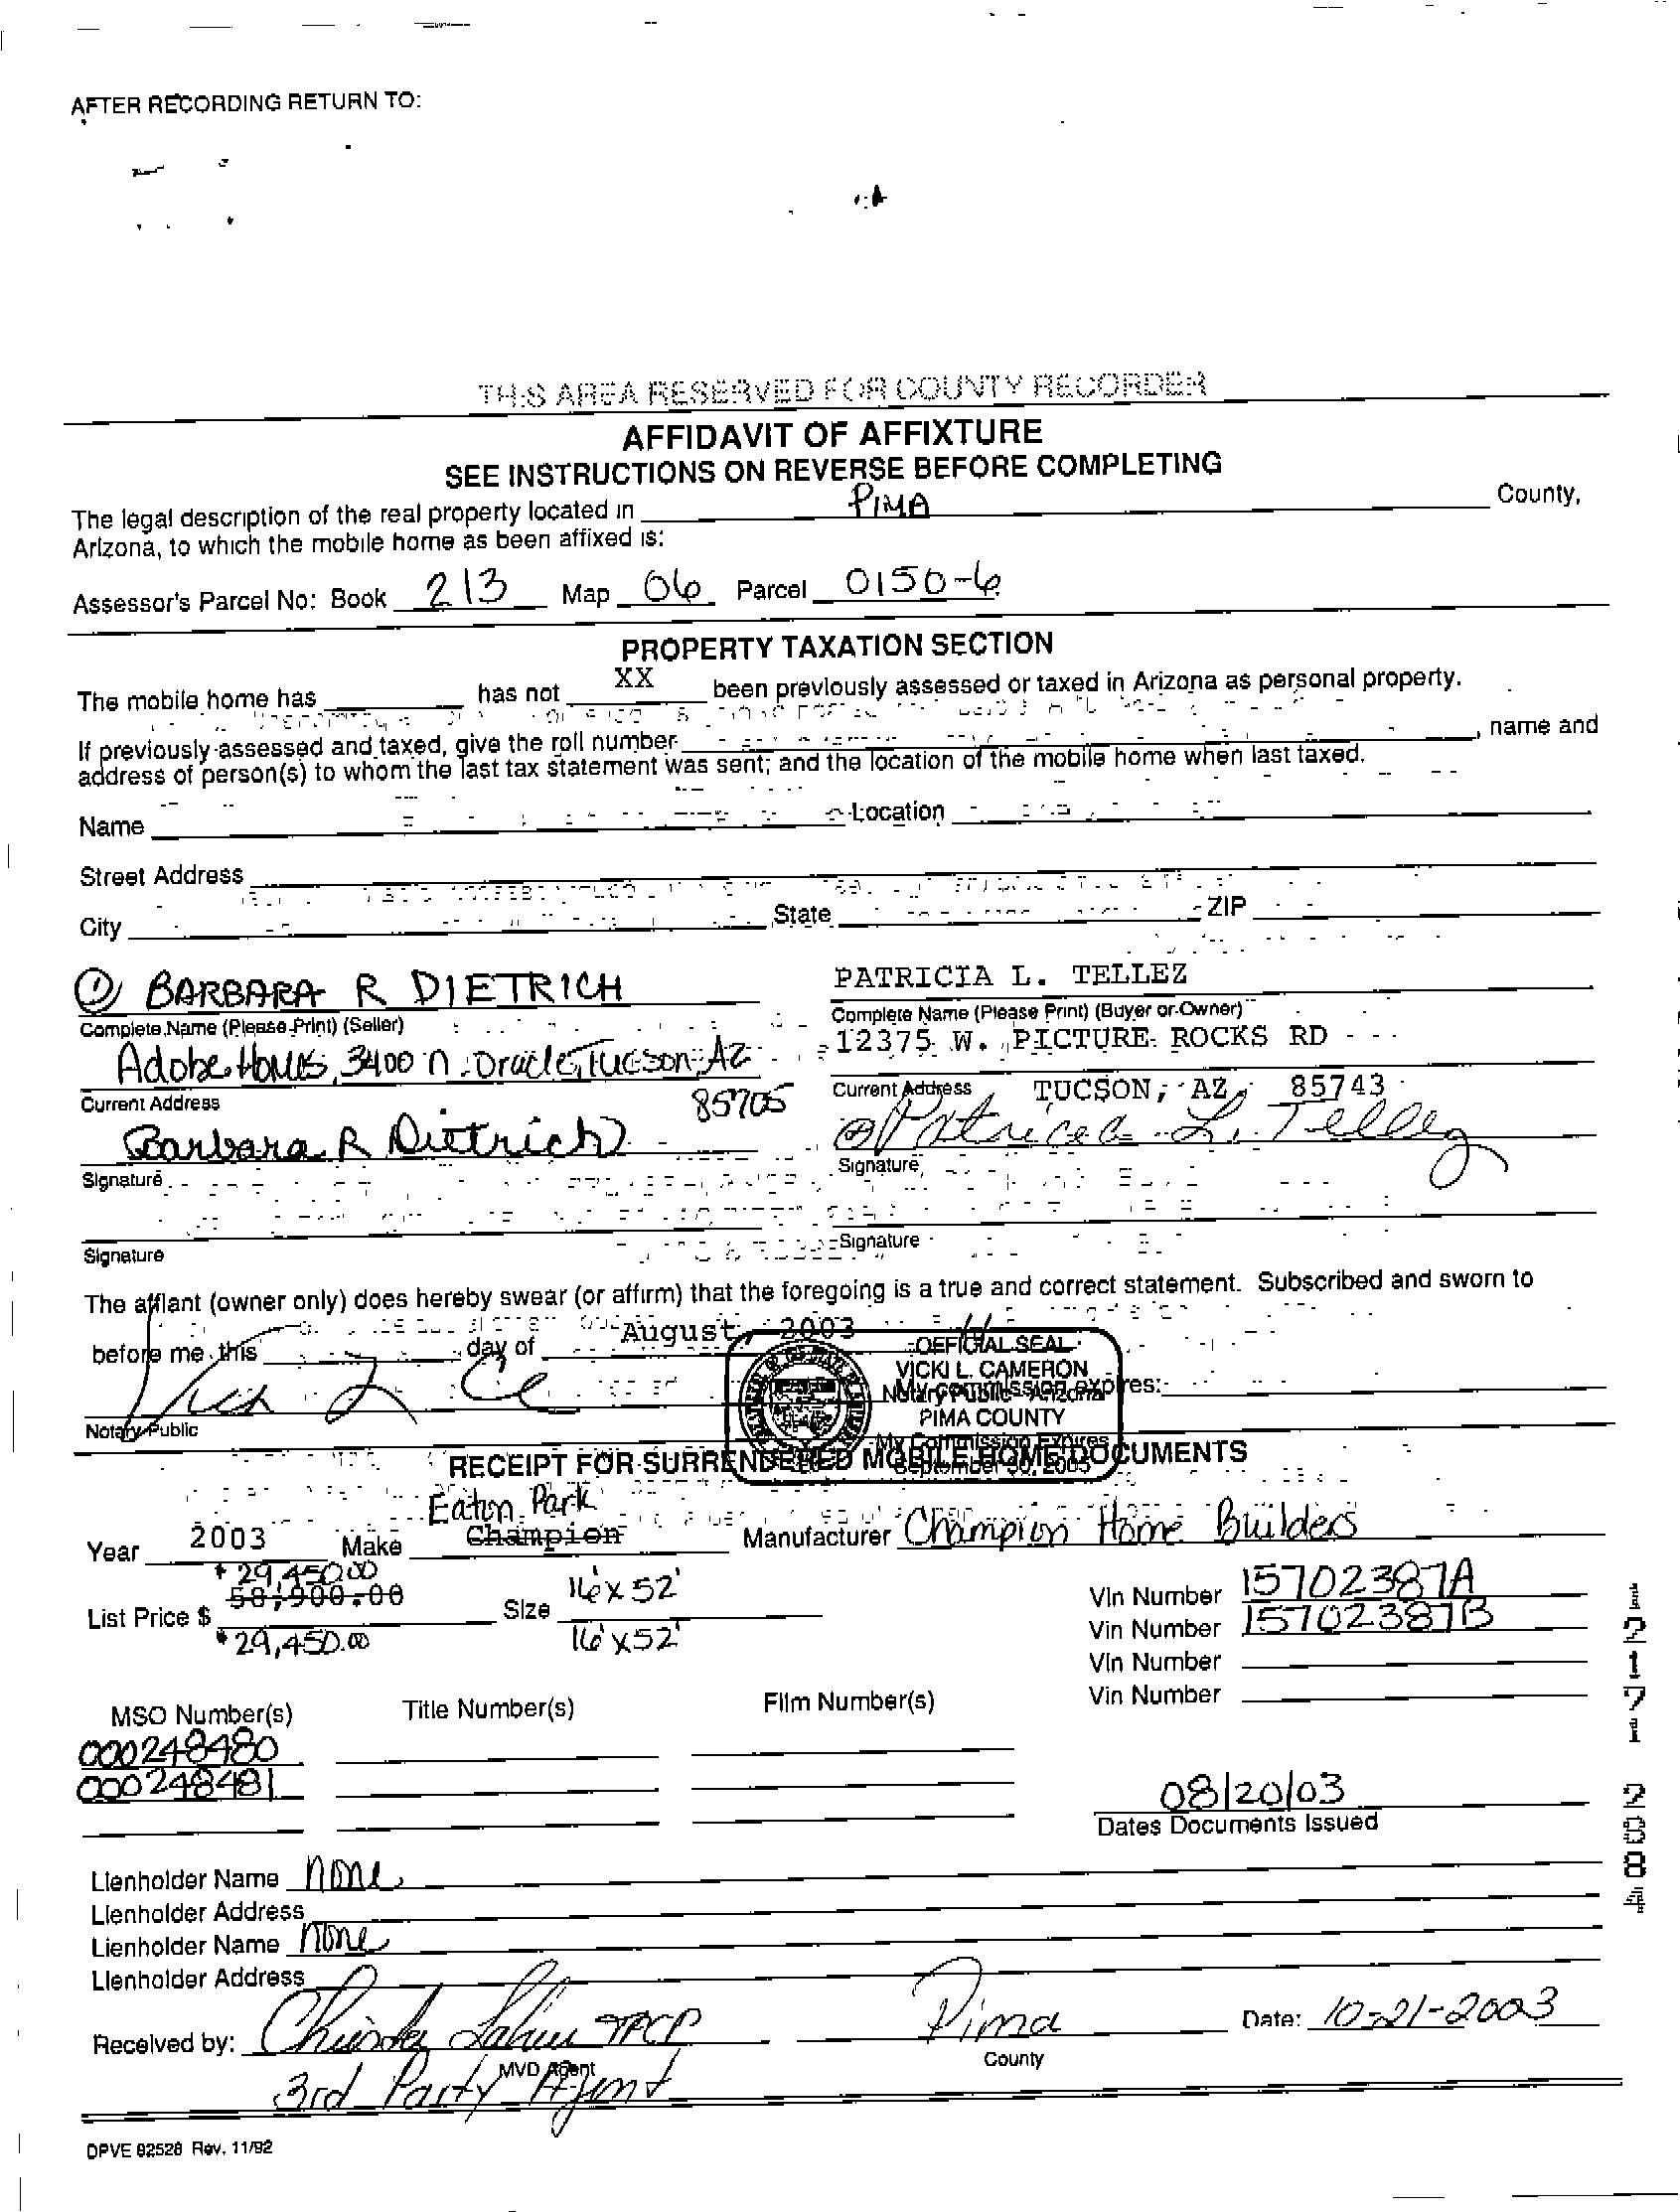 AFTER RECORDING RETURN TO:
THIS AREA RESERVED FOR COUNTY RECORDER
AFFIDAVIT OF AFFIXTURE
SEE INSTRUCTIONS ON REVERSE BEFORE COMPLETING
The legal description of the real property located in PIMA County,
Arizona, to which the mobile home as been affixed is:
Assessor's Parcel No: Book 213 Map 06 Parcel 0150-6
PROPERTY TAXATION SECTION
The mobile home has has not XX been previously assessed or taxed in Arizona as personal property.
If previously assessed and taxed, give the roll number , name and
address of person(s) to whom the last tax statement was sent; and the location of the mobile home when last taxed.
Name Location
Street Address
City State ZIP
① BARBARA R DIETRICH PATRICIA L. TELLEZ
Complete Name (Please Print) (Seller) Complete Name (Please Print) (Buyer or Owner)
Adobe Homes, 3400 N. Oracle, Tucson, AZ 12375 W. PICTURE ROCKS RD
Current Address 85705 Current Address TUCSON, AZ, 85743
Barbara R Dietrich Patricia L. Tellez
Signature Signature
Signature Signature
The affiant (owner only) does hereby swear (or affirm) that the foregoing is a true and correct statement. Subscribed and sworn to
before me this day of August, 2003
OFFICIAL SEAL
VICKI L. CAMERON
Notary Public - Arizona
My commission expires:
PIMA COUNTY
My Commission Expires
September 30, 2005
Notary Public
RECEIPT FOR SURRENDERED MOBILE HOME DOCUMENTS
Eaton Park
Year 2003 Make Champion Manufacturer Champion Home Builders
$29,450.00
List Price $ 58,900.00 Size 16'x52' Vin Number 15702387A
$29,450.00 16'x52' Vin Number 15702387B
Vin Number
Vin Number
MSO Number(s) Title Number(s) Film Number(s)
000248480
000248481
08/20/03
Dates Documents Issued
Lienholder Name none
Lienholder Address
Lienholder Name none
Lienholder Address
Received by: TPCP Pima Date: 10-21-2003
MVD Agent County
3rd Party Agent
DPVE 82528 Rev. 11/92
12171 2884